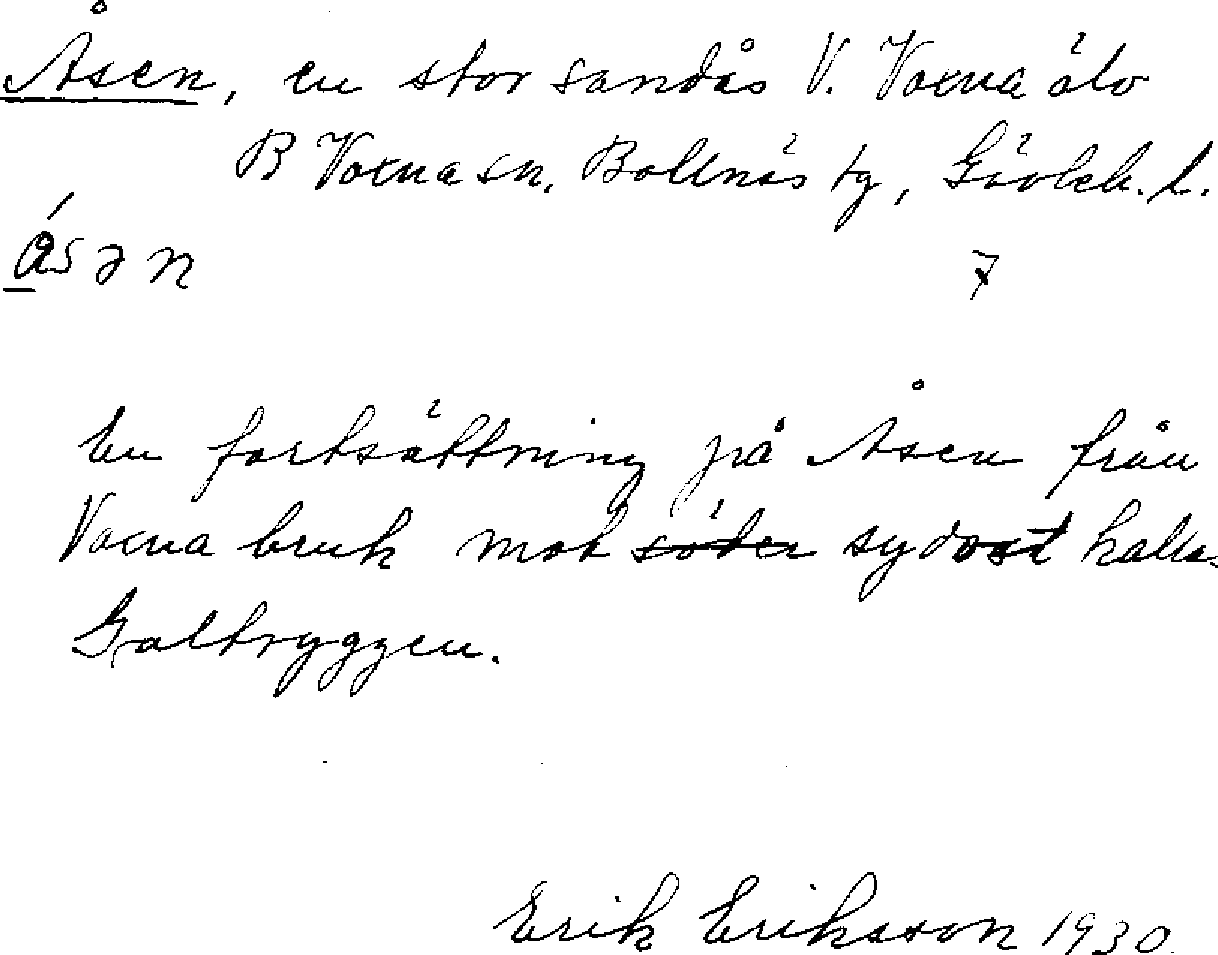 Åsen, en stor sandås V. Voxna älv
B Voxna sn, Bollnäs tg, Gävleb. l.
åsən 7
En fortsättning på Åsen från
Voxna bruk mot söder sydost kalla.
Galtryggen.
Erik Eriksson 1930.